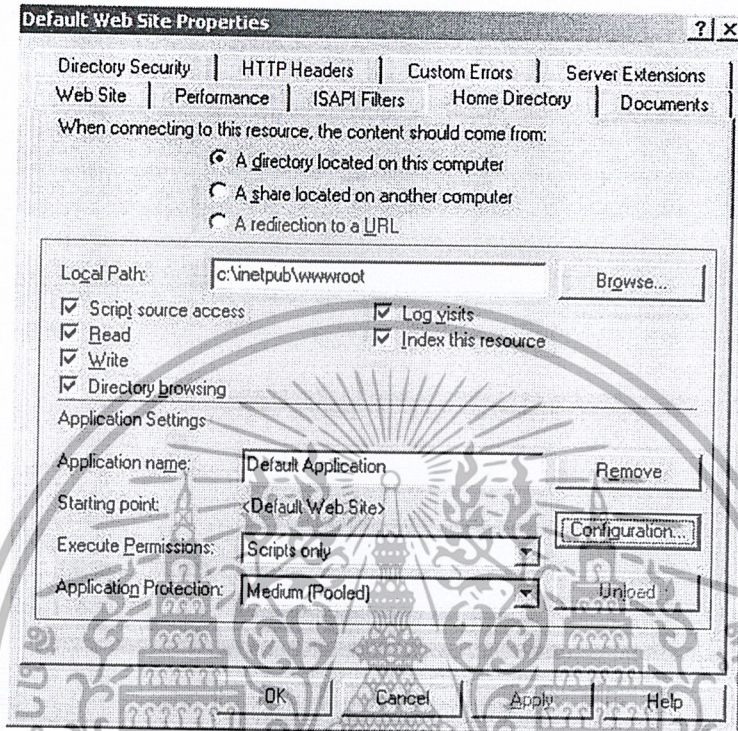 Default Web Site Properties ? ×
Directory Security HTTP Headers Custom Errors Server Extensions
Web Site Performance ISAPI Filters Home Directory Documents
When connecting to this resource, the content should come from:
A directory located on this computer
A share located on another computer
A redirection to a URL
Local Path: c:\inetpub\wwwroot Browse...
Script source access Log visits
Read Index this resource
Write
Directory browsing
Application Settings
Application name: Default Application Remove
Starting point: <Default Web Site>
Configuration...
Execute Permissions: Scripts only
Application Protection: Medium (Pooled) Unload
OK Cancel Apply Help